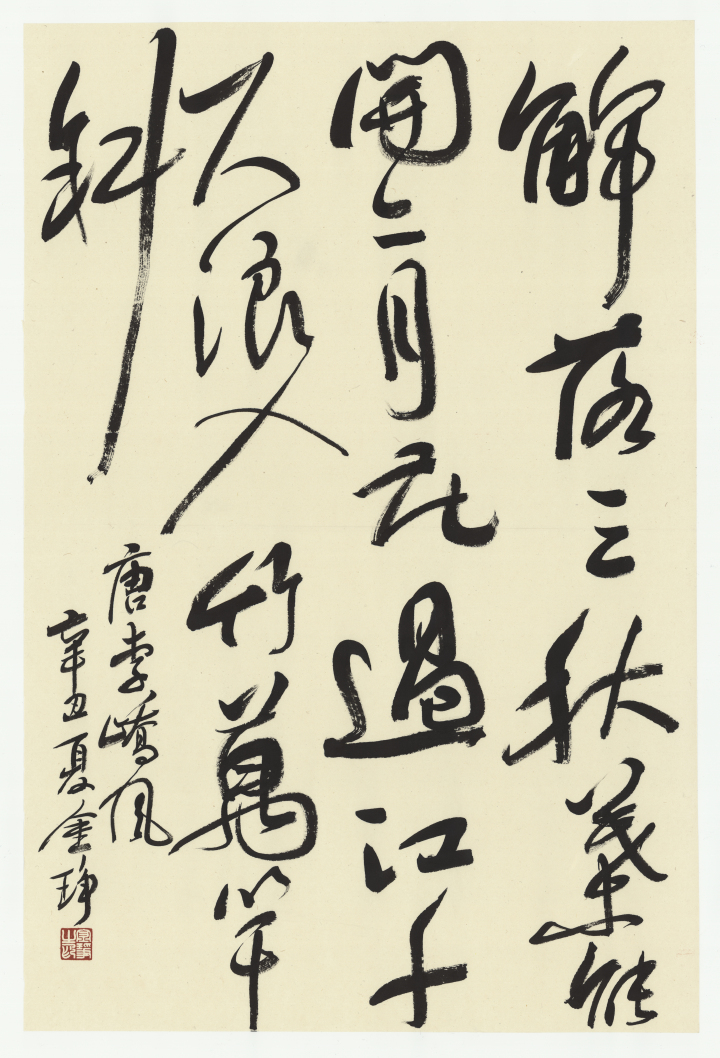 解落三秋葉能
開二月花過江千
尺浪入竹萬竿
斜
唐李嶠風
辛丑夏金琤